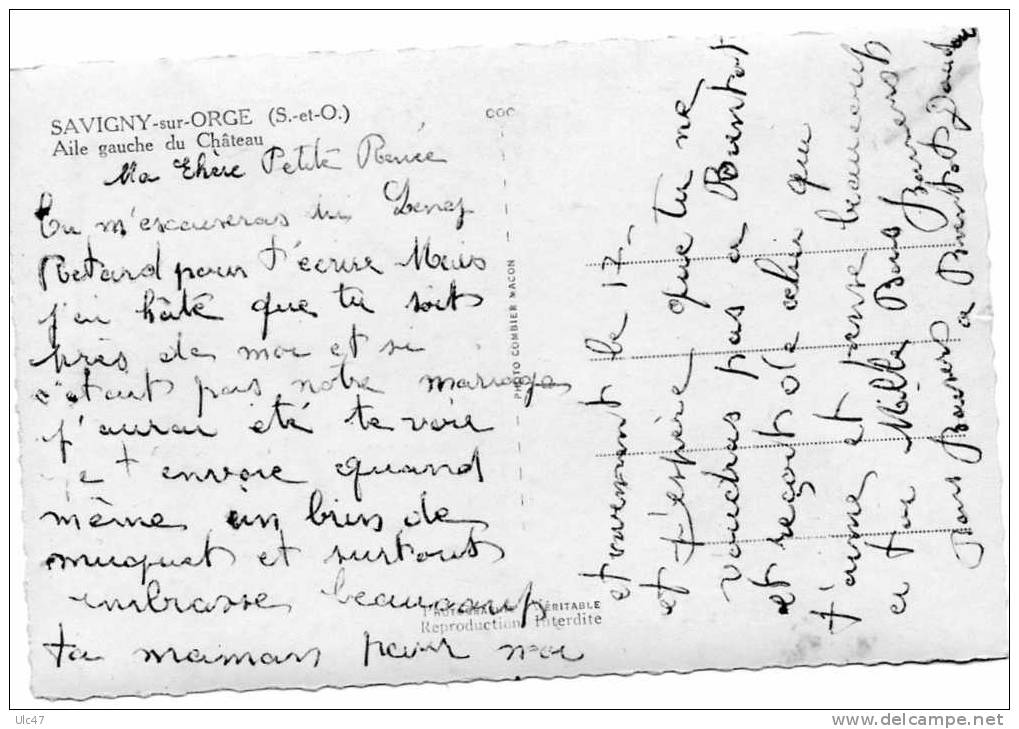 SAVIGNY-sur-ORGE (S.-et-O.)
Aile gauche du Château
COC
Ma Chère Petite Renée
Tu m'excuseras du
Retard pour t'écrire Mais
j'ai hâte que tu soit
près de moi et si
s'étant pas notre mariage
j'aurai été te voir
je t'envoie quand
même un brin de
muguet et surtout
embrasse beaucoup
ta maman pour moi
PHOTO COMBIER MACON
PHOTOGRAPHIE VÉRITABLE
Reproduction Interdite
le 17
et j'espère que tu ne
voudras pas a Bientot
et reçoit de celui qui
t'aime et pense beaucoup
a toi Mille Bons Baisers
Bons Baisers a Bientot
Ulc47
www.delcampe.net